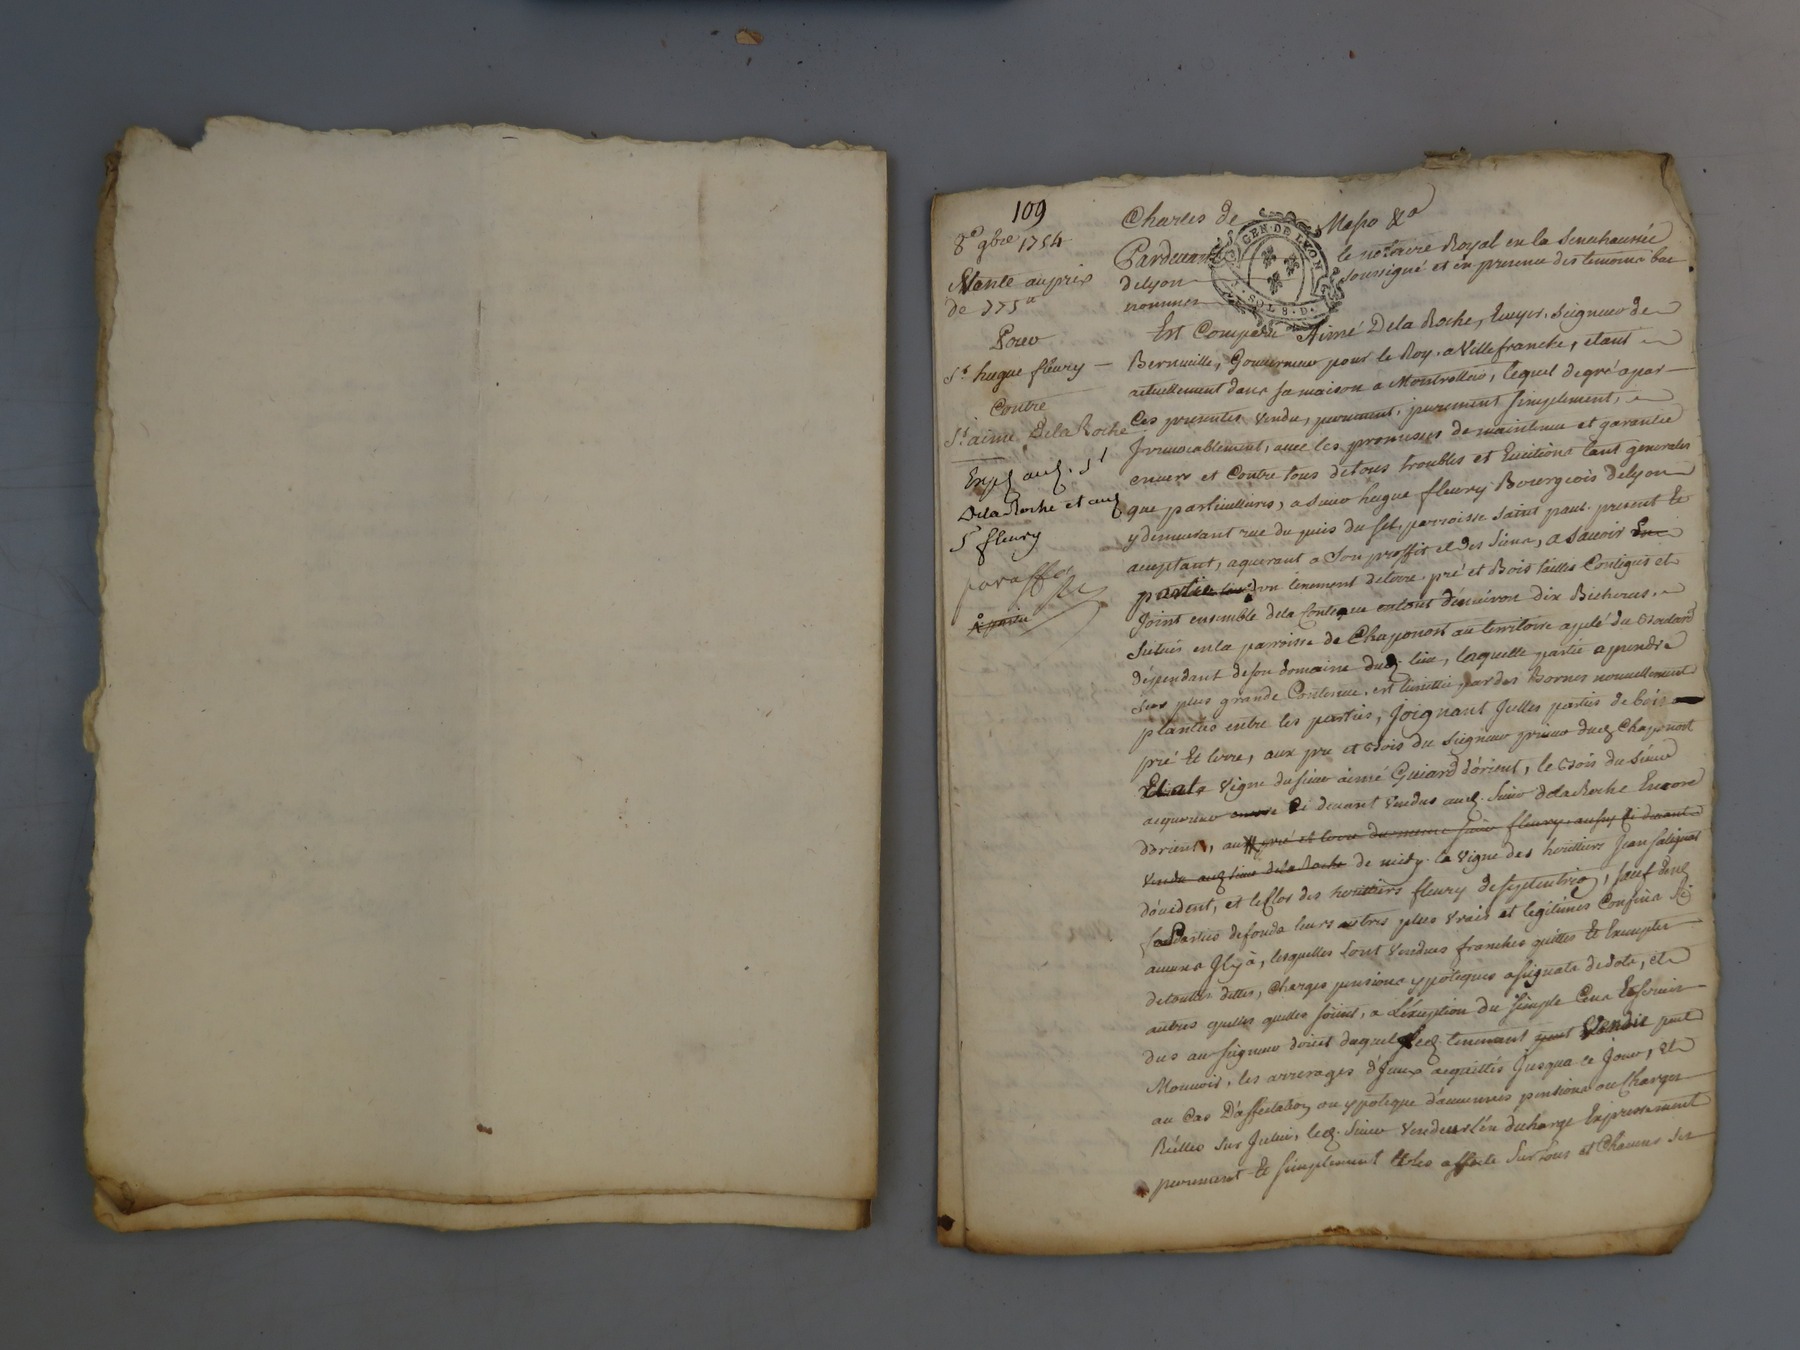 109
8e 9bre 1754
Vante au prix
de 775 ₶
Pour
Sr hugue fleury
Contre
Sr aimé Dela Roche
Expé aud. Sr
Dela Roche et aud
Sr fleury
paraffé
Charles de Masso &a
GEN. DE LYON
SOLS. D.
Pardevant le notaire Royal en la Senechaussée
delyon soussigné et en presence des temoins bas
nommes
Est Comparu Aimé Dela Roche, Ecuyer, Seigneur de
Bernuille, Gouverneur pour le Roy a Villefranche, etant
actuellement dans sa maison a Montrollier, lequel de gré a par
Ces presentes Vendu, purement, simplement,
Irrevocablement, avec les promesses de maintenue et garantie
envers et Contre tous de tous troubles et Evictions tant generales
que particulieres, a Sieur hugue fleury Bourgeois delyon
y demeurant rue du puis du sel, parroisse saint paul present Et
acceptant, aquerant a Son proffit et des Siens, a Scavoir Une
partie d'un tenement de terre pré et Bois taillis Contigus et
Joint ensemble dela Contenue en tout d'environ dix Bicherees
Situés en la parroisse de Chaponost au territoire apelé du
dépendant de son domaine dud. lieu, laquelle partie a prendre
Sur plus grande Contenue, est limitée par des Bornes nouvellement
plantées entre les parties, Joignant Jcelles parties de bois
pré Et terre, aux pré et Bois du Seigneur prieur dud Chaponost
Et a la Vigne du sieur aimé Guiard d'orient, le Bois du Sieur
aquereur Ci devant Vendus aud. Sieur dela Roche Encore
d'orient, aux pré et terre du meme sieur fleury aussy Ci devant
Vendu aud sieur dela Roche de midy la Vigne des heritiers Jean
d'occident, et le Clos des heritiers fleury de septentrion, sauf desd
parties de fonds leurs autres plus Vrais et legitimes Confins Si
aucuns Jl y à, lesquelles Sont Vendues franches quittes Et Exemptes
de toutes dettes, Charges pensions ypoteques assignats de dots, et
autres quelles quelles soient, a L'exception du simple Cens Et Servis
dus au seigneur direct duquel led. tenement Vendu peut
Mouvoir, les arrerages d'Jceux acquittés Jusqua ce Jour, Et
au Cas D'affectation ou ypoteque d'aucunes pensions ou Charges
Réelles Sur Jcelui, led. Sieur Vendeur l'en decharge Expressement
purement Et simplement Et les affecte Sur tous et Chacuns Ses